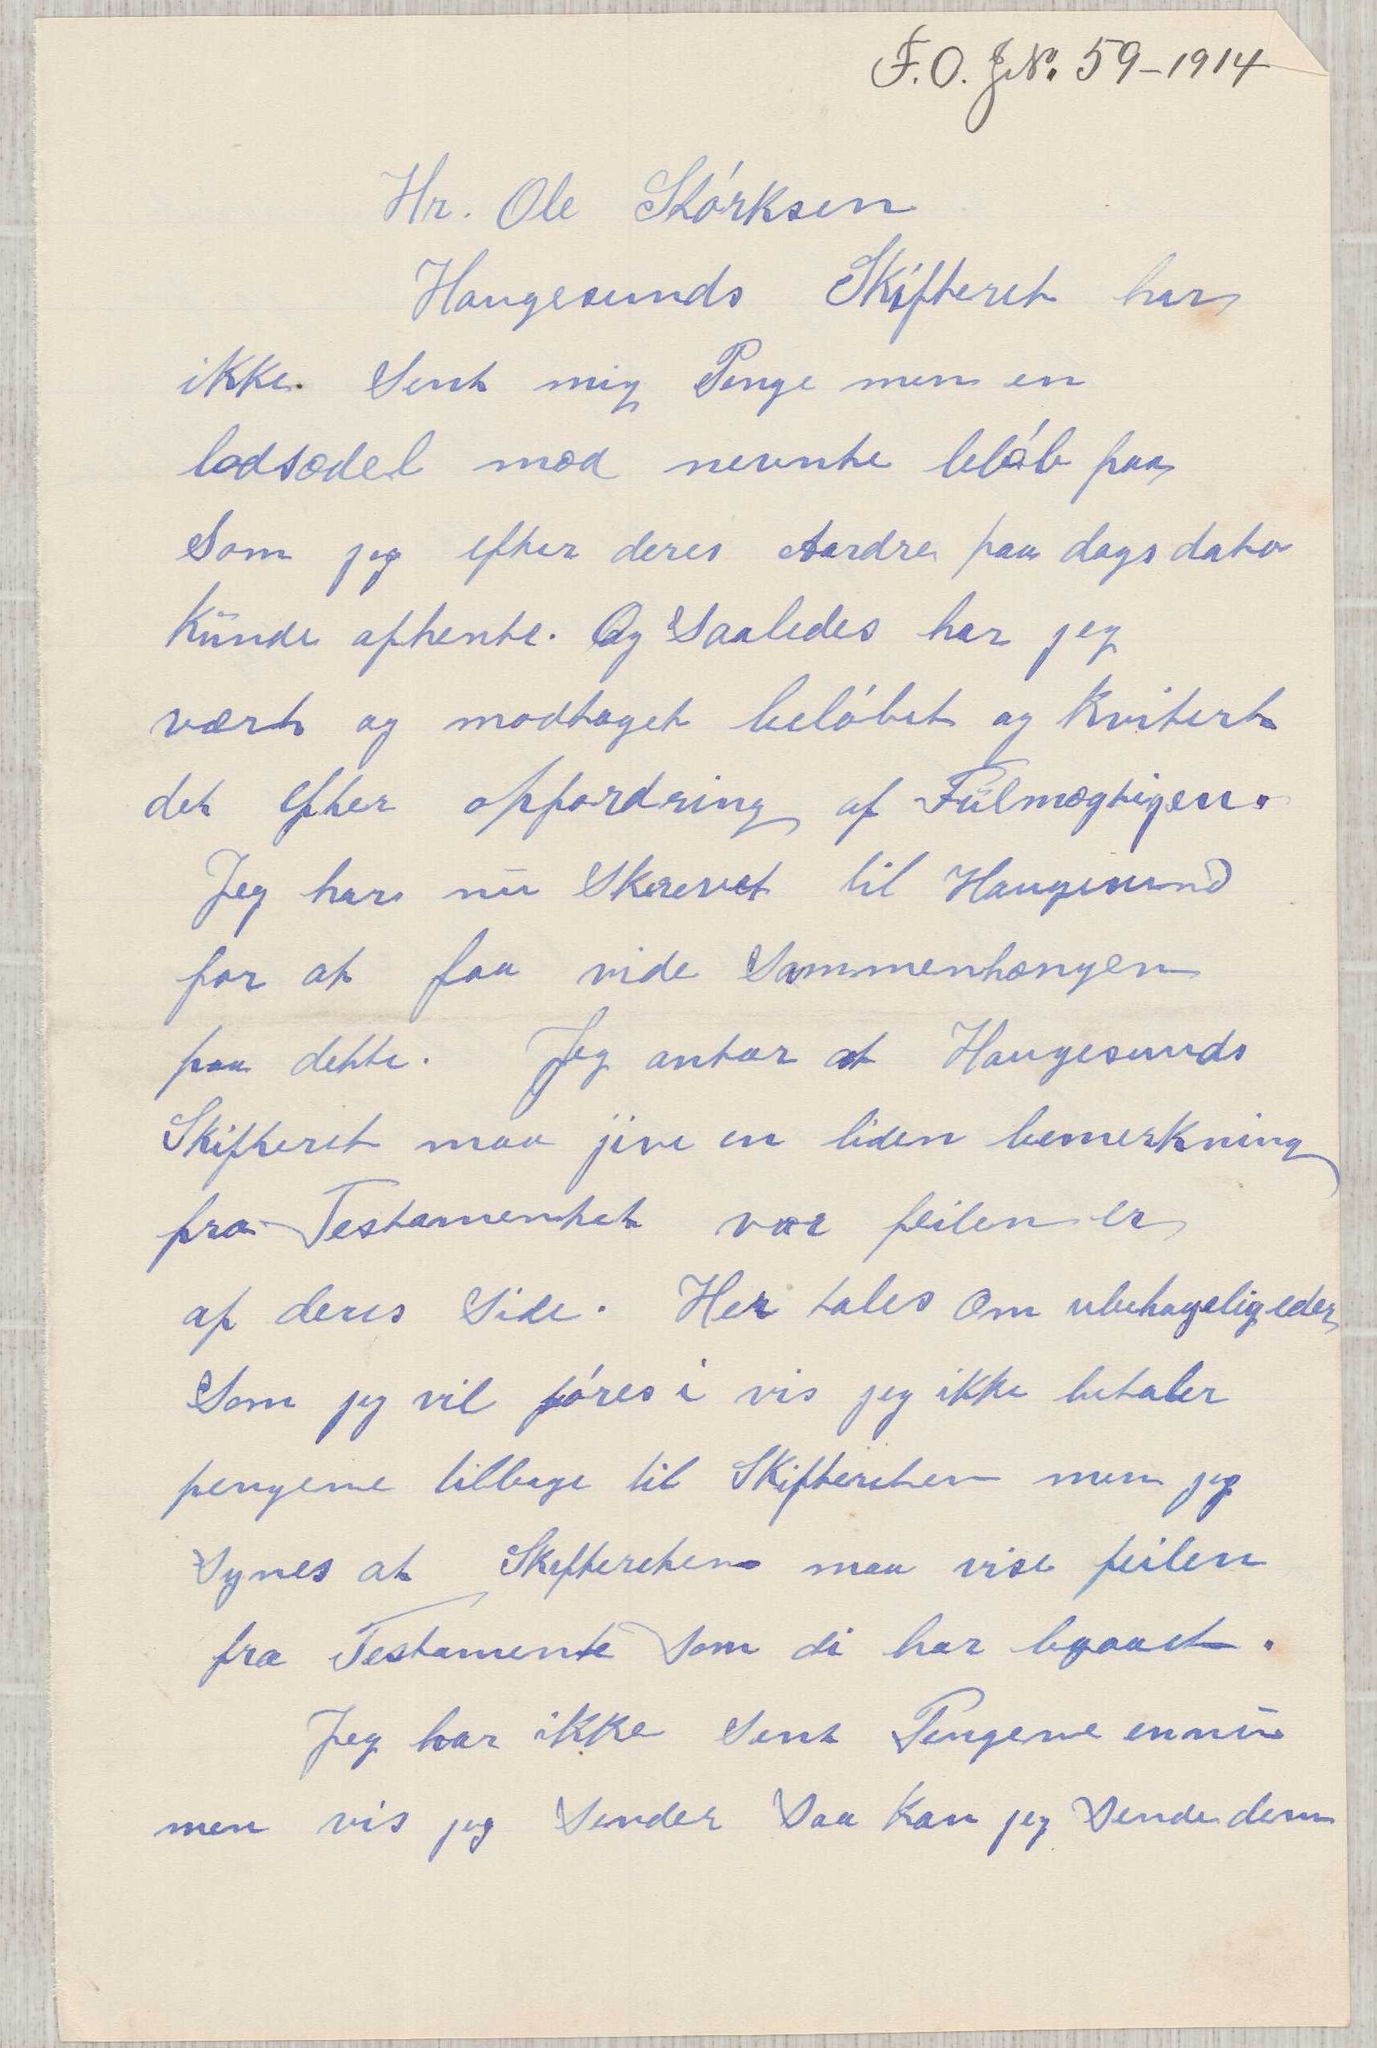 F.O. JNo. 59-1914
Hr. Ole Störksen
Haugesunds Skifteret har
ikke. Sent mig Penge men en
lodsedel med nevnte beløb paa
Som jeg efter deres Aardre paa dags dato
Künde afhente. Og Saaledes har jeg
vært og modtaget beløbet og Kvitert
det efter oppfordring af Fülmegtigen.
Jeg har nü Skrevet til Haugesund
for at faa vide Sammenhengen
paa dette. Jeg antar at Haugesunds
Skifteret maa jive en liden bemerkning
fra Testamentet vor feilen er
af deres Side. Her tales Om ubehageligeder
Som jeg vil føres i vis jeg ikke betaler
pengene tilbage til Skifteretten men jeg
Synes at Skifteretten maa vise feilen
fra Testamente Som di har begaaet.
Jeg har ikke Sent Pengene ennü
men vis jeg Sender Saa Kan jeg Sende dem